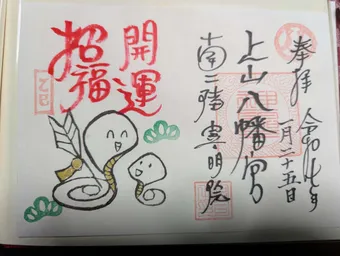 奉拝
令和七年
一月二十五日
上山八幡宮
南三陸
開運
招福
乙巳